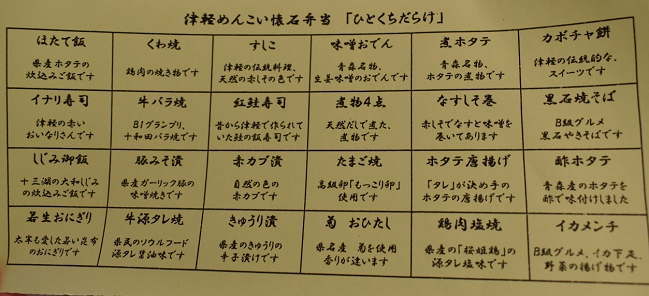 津軽めんこい懐石弁当 「ひとくちだらけ」
ほたて飯
県産ホタテの
炊込みご飯です
くわ焼
鶏肉の焼き物です
すしこ
津軽の伝統料理、
天然の赤しその色です
味噌おでん
青森名物、
生姜味噌のおでんです
煮ホタテ
青森名物、
ホタテの煮物です
カボチャ餅
津軽の伝統的な、
スイーツです
イナリ寿司
津軽の赤い
おいなりさんです
牛バラ焼
B1グランプリ、
十和田バラ焼です
紅鮭寿司
昔から津軽で作られて
いた鮭の飯寿司です
煮物4点
天然だしで煮た、
煮物です
なすしそ巻
赤しそでなすと味噌を
巻いてあります
黒石焼そば
B級グルメ
黒石やきそばです
しじみ御飯
十三湖の大和しじみ
の炊込みご飯です
豚みそ漬
県産ガーリック豚の
味噌焼きです
赤カブ漬
自然の色の
赤カブです
たまご焼
高級卵「もっこり卵」
使用です
ホタテ唐揚げ
「タレ」が決め手の
ホタテの唐揚げです
酢ホタテ
青森産のホタテを
酢で味付けしました
若生おにぎり
太宰も愛した若い昆布
のおにぎりです
牛源タレ焼
県民のソウルフード
源タレ醤油味です
きゅうり漬
県産のきゅうりの
辛子漬けです
菊 おひたし
県名産 菊を使用
香りが違います
鶏肉塩焼
県産の「桜姫鶏」の
源タレ塩味です
イカメンチ
B級グルメ、イカ下足、
野菜の揚げ物です